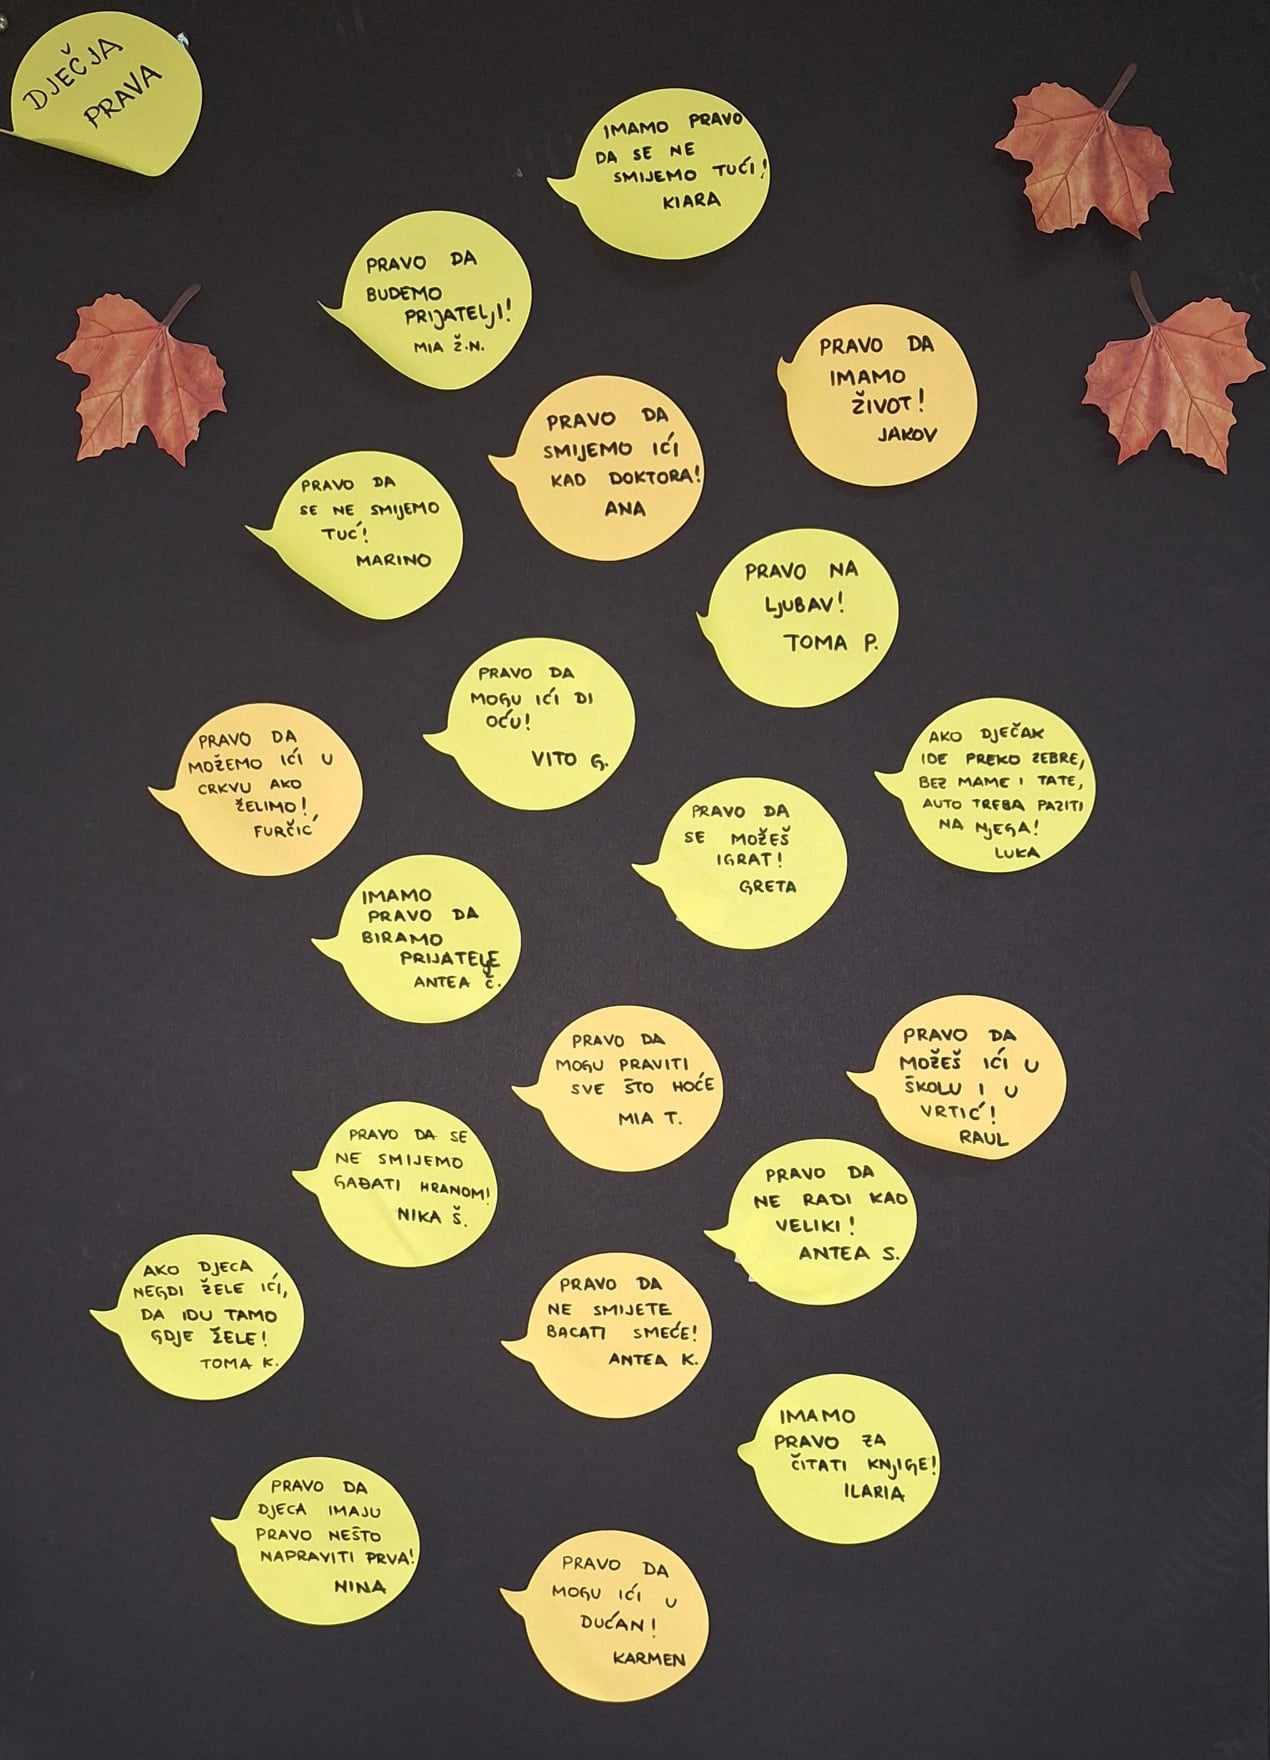 DJEČJA
PRAVA
IMAMO PRAVO
DA SE NE
SMIJEMO TUĆI!
KIARA
PRAVO DA
BUDEMO
PRIJATELJI!
MIA Ž.N.
PRAVO DA
IMAMO
ŽIVOT!
JAKOV
PRAVO DA
SMIJEMO IĆI
KAD DOKTORA!
ANA
PRAVO DA
SE NE SMIJEMO
TUĆ!
MARINO
PRAVO NA
LJUBAV!
TOMA P.
PRAVO DA
MOGU IĆI DI
OĆU!
VITO G.
PRAVO DA
MOŽEMO IĆI U
CRKVU AKO
ŽELIMO!
FURČIĆ
AKO DJEČAK
IDE PREKO ZEBRE,
BEZ MAME I TATE,
AUTO TREBA PAZITI
NA NJEGA!
LUKA
PRAVO DA
SE MOŽEŠ
IGRAT!
GRETA
IMAMO
PRAVO DA
BIRAMO
PRIJATELJE
ANTEA Č.
PRAVO DA
MOGU PRAVITI
SVE ŠTO HOĆE
MIA T.
PRAVO DA
MOŽEŠ IĆI U
ŠKOLU I U
VRTIĆ!
RAUL
PRAVO DA SE
NE SMIJEMO
GAĐATI HRANOM!
NIKA Š.
PRAVO DA
NE RADI KAO
VELIKI!
ANTEA S.
AKO DJECA
NEGDI ŽELE IĆI,
DA IDU TAMO
GDJE ŽELE!
TOMA K.
PRAVO DA
NE SMIJETE
BACATI SMEĆE!
ANTEA K.
IMAMO
PRAVO ZA
ČITATI KNJIGE!
ILARIA
PRAVO DA
DJECA IMAJU
PRAVO NEŠTO
NAPRAVITI PRVA!
NINA
PRAVO DA
MOGU IĆI U
DUĆAN!
KARMEN